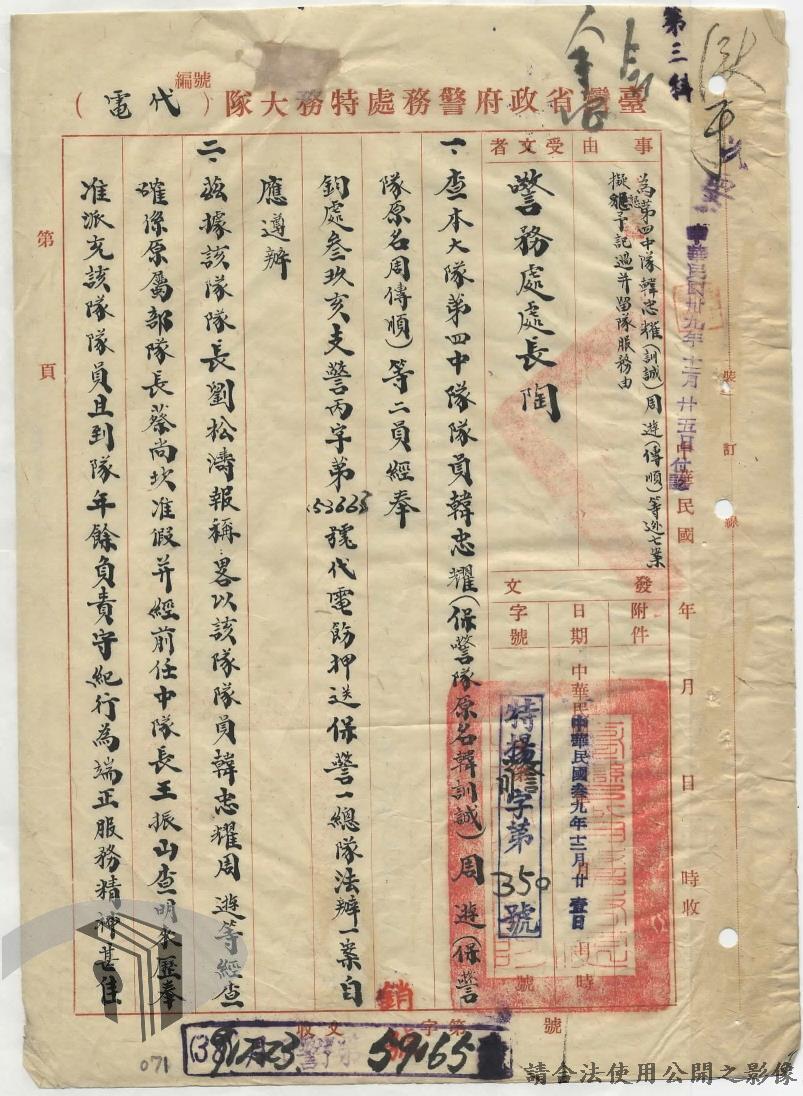 第三科
臺灣省政府警務處特務大隊（代電）
編號
事由
為第四中隊韓忠耀（訓誠）周遊（傳順）等逃亡案
擬懇予記過并留隊服務由
受文者
警務處處長陶
發文
附件
日期
字號
中華民國叁九年十二月廿壹日
特揚警字第350號
一、查本大隊第四中隊隊員韓忠耀（保警隊原名韓訓誠）周遊（保警
隊原名周傳順）等二員經奉
鈞處叁玖亥支警丙字第53665號代電飭押送保警一總隊法辦一案自
應遵辦
二、茲據該隊隊長劉松濤報稱：畧以該隊隊員韓忠耀周遊等經查
確係原屬部隊長蔡尚坎准假并經前任中隊長王振山查明來歷奉
准派充該隊隊員且到隊年餘負責守紀行為端正服務精神甚佳
第 頁
裝訂線
中華民國卅九年十二月廿五日
中華民國 年 月 日 時收
收文 字第 號
銷號
59165
071
請合法使用公開之影像